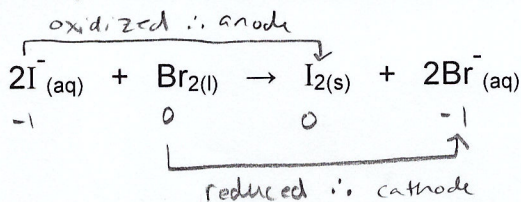 oxidized ∴ anode
2I⁻(aq) + Br₂(l) → I₂(s) + 2Br⁻(aq)
-1 0 0 -1
reduced ∴ cathode